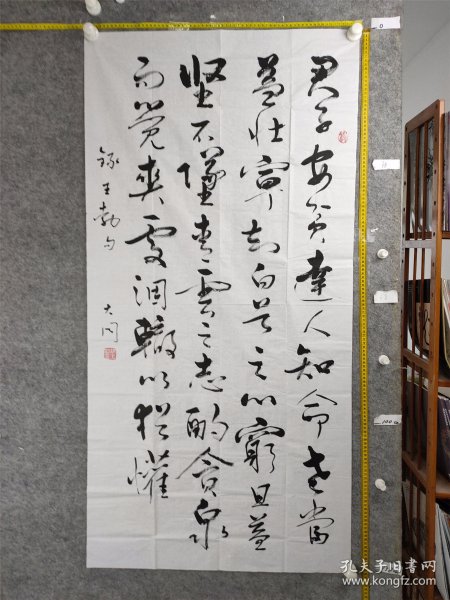 君子安贫达人知命老当
益壮宁知白首之心穷且益
坚不坠青云之志酌贪泉
而觉爽处涸辙以犹懽
录王勃句
大同
孔夫子旧书网
www.kongfz.com